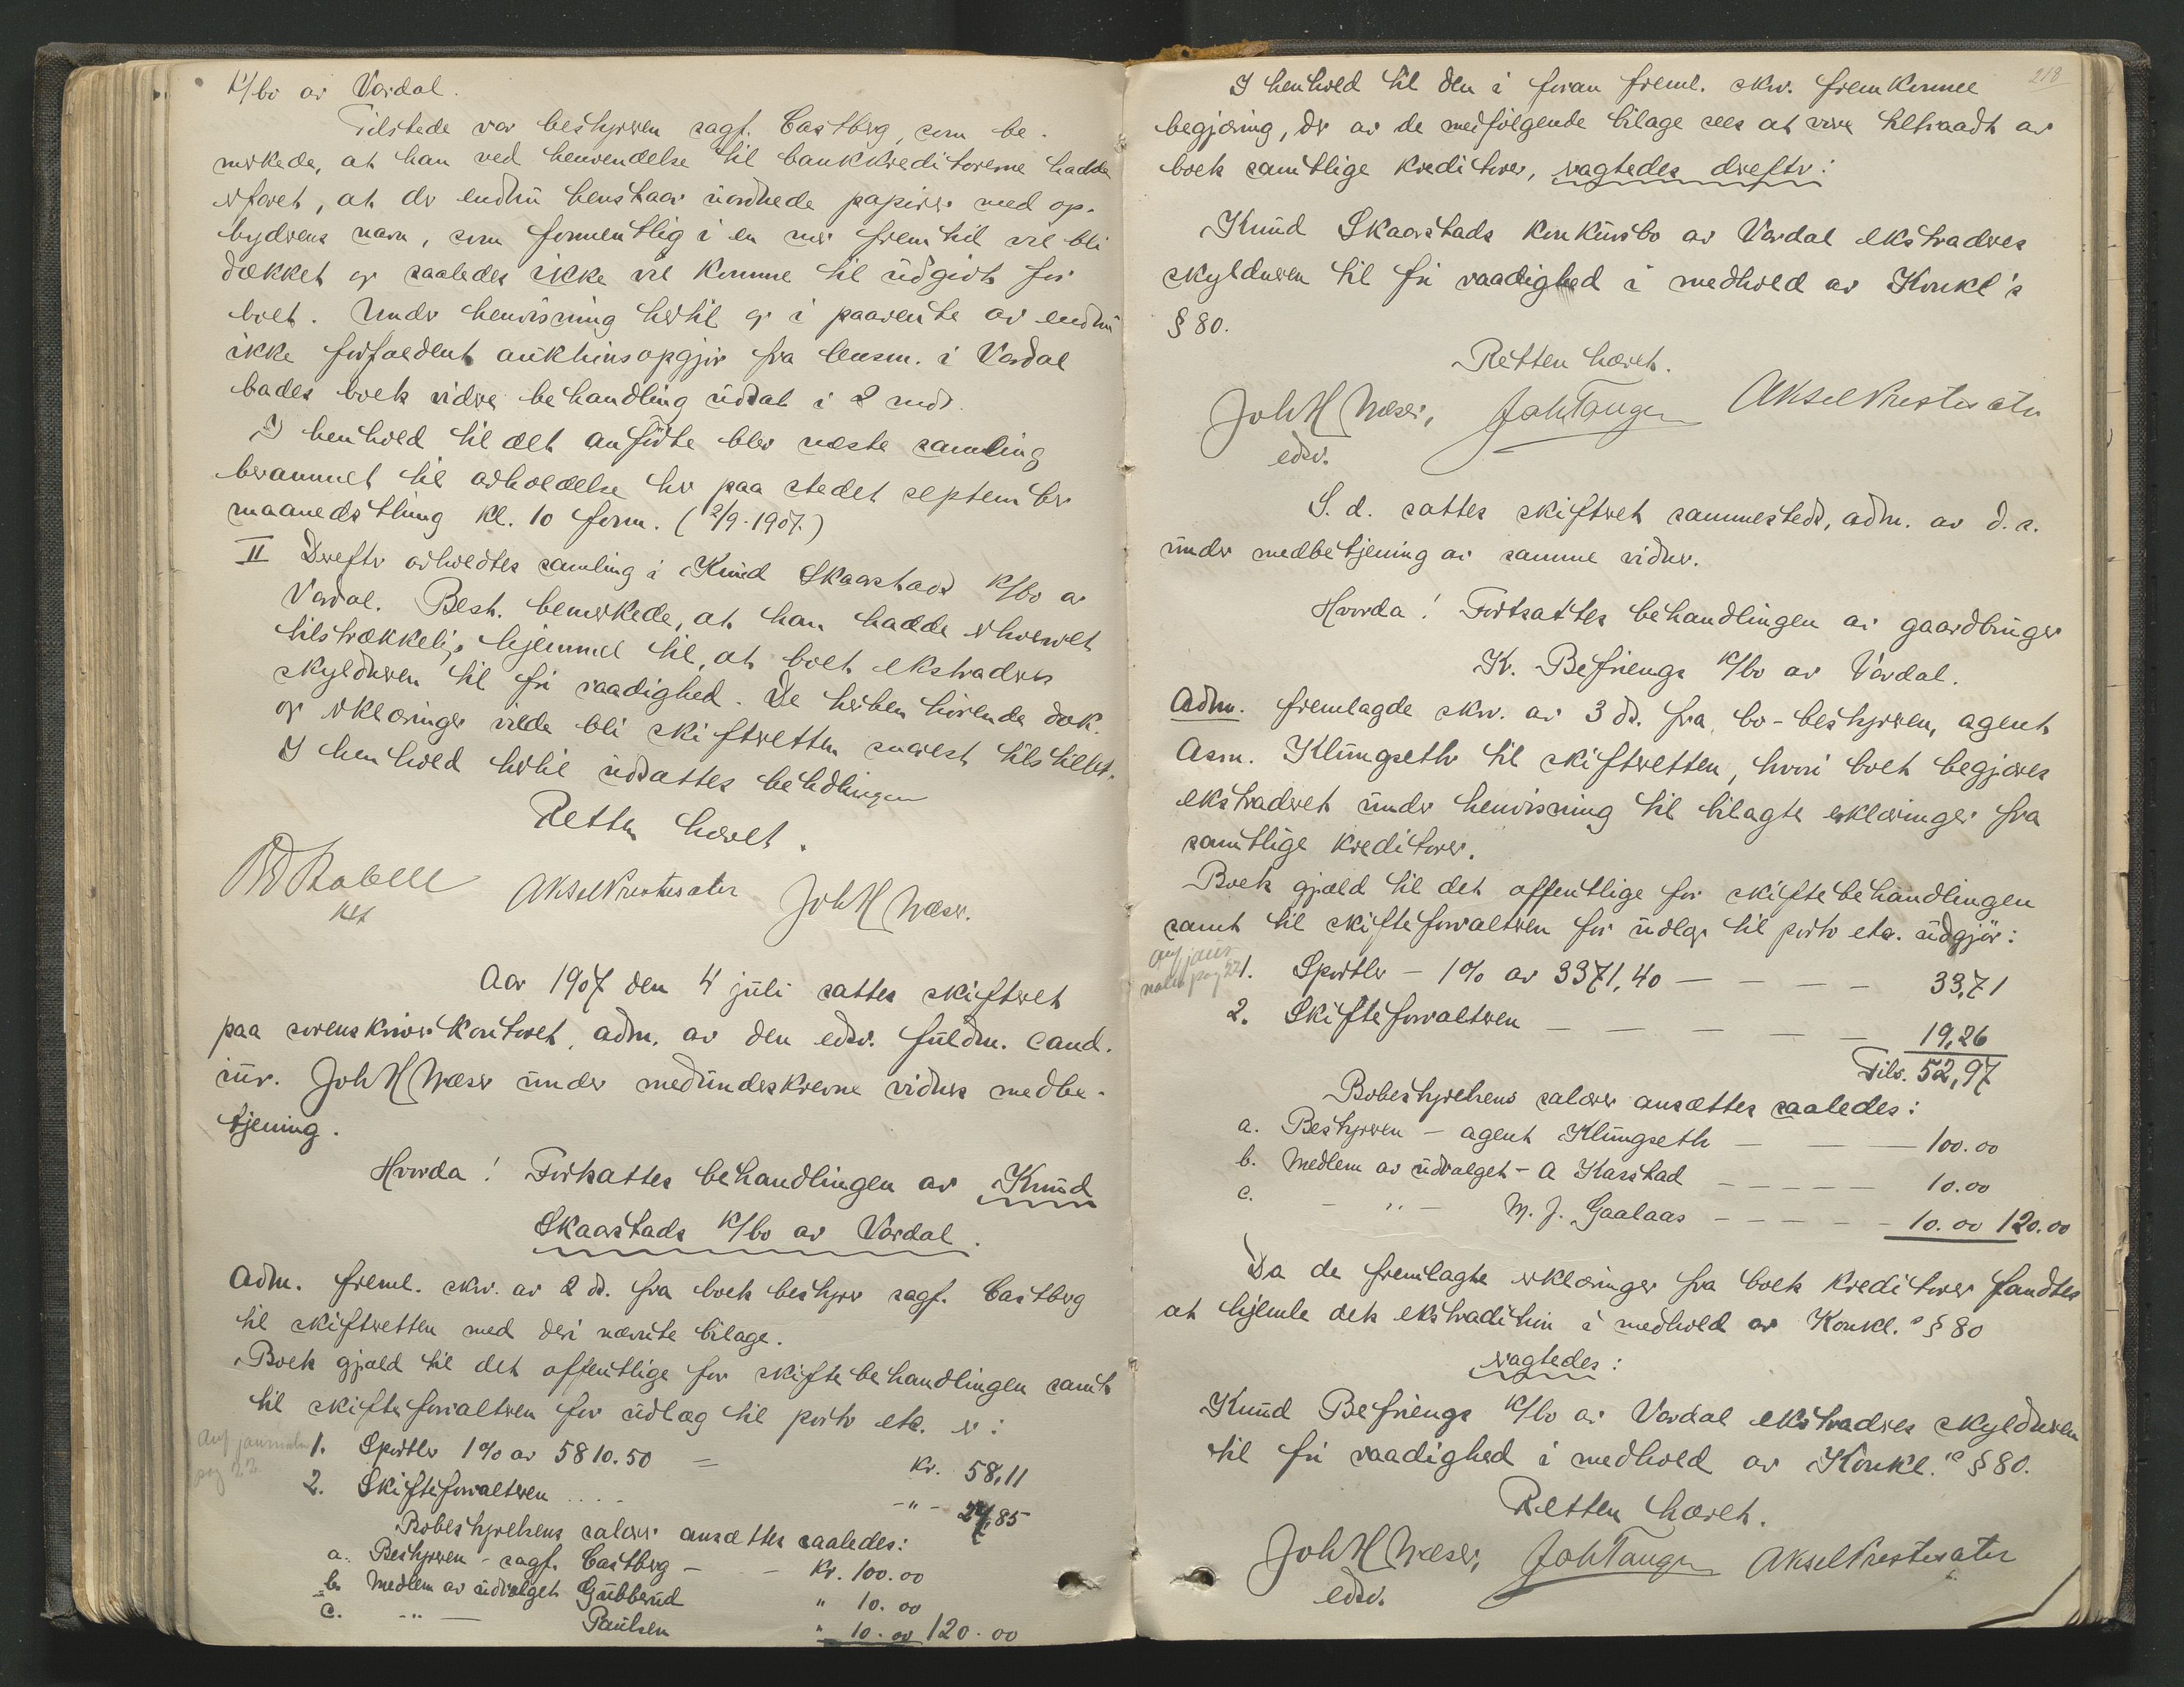 K/bo av Vardal.
Tilstede var bestyreren sagf. Castberg, som be-
merkede, at han ved henvendelse til bankkreditorerne hadde
erfaret, at der endnu henstaar uordnede papirer med op-
byderens navn, som formentlig i en nær fremtid vil bli
dækket og saaledes ikke vil komme til udgivt for
boet. Under henvisning hertil og i paavente av endnu
ikke forfaldent auktionsopgjør fra lensm. i Vardal
bades boets videre behandling udsat i 2 mdr.
I henhold til det anførte blev næste samling
berammet til avholdelse her paa stedet september
maanedsthing kl. 10 form. (2/9-1907.)
II Derefter avholdtes samling i Knud Skaarstads K/bo av
Vardal. Best. bemerkede, at han hadde erhvervet
tilstrækkelig hjemmel til, at boet ekstraderes
skyldneren til fri raadighed. De herhen hørende dok.
og erklæringer vilde bli skifteretten snarest tilstillet.
I henhold hertil udsattes behdlingen
Retten hævet.
Aksel Prestesæter Joh H Næser.
Aar 1907 den 4 juli sattes skifteret
paa sorenskriverkontoret, adm. av den edsv. fuldm. cand.
jur. Joh H Næser under medunderskrevne vidners medbe-
tjening.
Hvorda! Fortsattes behandlingen av Knud
Skaarstads K/bo av Vardal.
Adm. freml. skr. av 2 ds. fra boets bestyrer sagf. Castberg
til skifteretten med deri nævnte bilage.
Boets gjæld til det offentlige for skiftebehandlingen samt
til skifteforvalteren for udlæg til porto etc. er:
Anf journalen pag 22
1. Sportler 1% av 5810.50 = Kr. 58,11
2. Skifteforvalteren .... -"- 24,85
Bobestyrelsens salærer ansættes saaledes:
a. Bestyreren - sagf. Castberg - - Kr. 100.00
b. Medlem av udvalget Gubberud " 10.00
c. -"- Paulsen " 10.00 120.00
218
I henhold til den i foran freml. skr. fremkomne
begjæring, der av de medfølgende bilage sees at være tiltraadt av
boets samtlige kreditorer, vagtedes derefter:
Knud Skaarstads konkursbo av Vardal ekstraderes
skyldneren til fri raadighed i medhold av Konkl's
§ 80.
Retten hævet.
Joh H Næser, Joh Tangen Aksel Prestesæter
edsv.
S. d. sattes skifteret sammesteds, adm. av d. s.
under medbetjening av samme vidner.
Hvorda! Fortsattes behandlingen av gaardbruger
K. Befrengs K/bo av Vardal.
Adm. fremlagde skr. av 3 ds. fra bo-bestyreren, agent
Asm. Klungseth til skifteretten, hvori boet begjæres
ekstraderet under henvisning til bilagte erklæringer fra
samtlige kreditorer.
Boets gjæld til det offentlige for skiftebehandlingen
samt til skifteforvalteren for udlæg til porto etc. udgjør:
Anf jour nalen pag 22
1. Sportler - 1% av 3371,40 - - - - 33,71
2. Skifteforvalteren - - - - - 19,26
Tils. 52,97
Bobestyrelsens salærer ansættes saaledes:
a. Bestyreren - agent Klungseth - - - 100.00
b. Medlem av udvalget - A Karstad - - - - - 10.00
c. - " - M. J. Gaalaas - - - - - 10.00 120.00
Da de fremlagte erklæringer fra boets kreditorer fandtes
at hjemle dets ekstradition i medhold av Konkl.s § 80
vagtedes:
Knud Befrengs K/bo av Vardal ekstraderes skyldneren
til fri raadighed i medhold av Konkl.s § 80.
Retten hævet.
Joh H Næser, Joh Tangen Aksel Prestesæter
edsv.